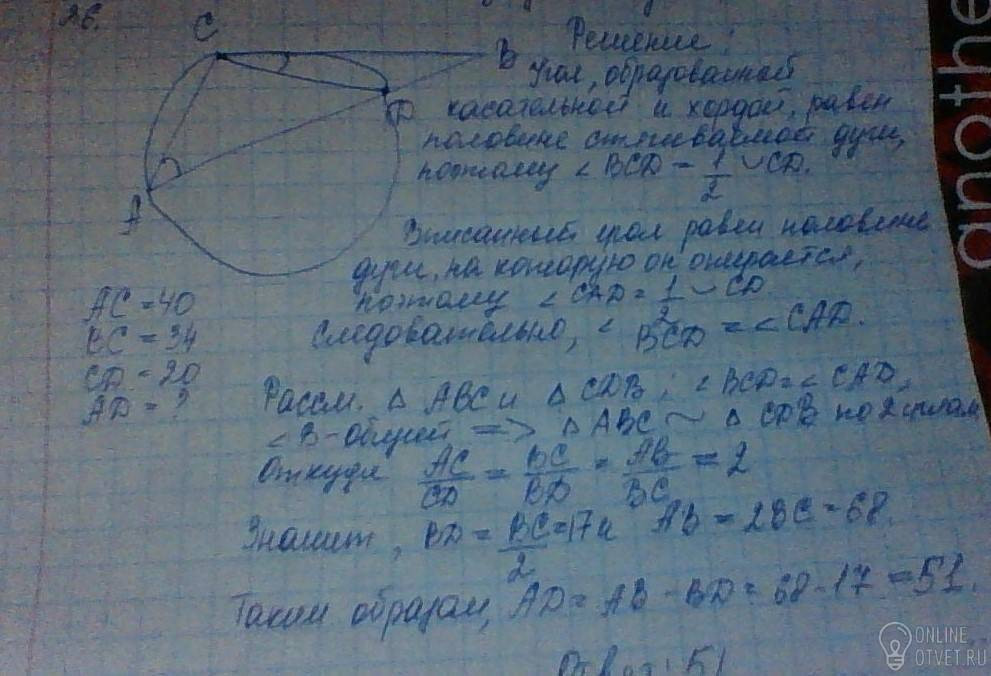 26.
C
B
D
A
Решение:
Угол, образованный
касательной и хордой, равен
половине стягиваемой дуги,
поэтому < BCD = 1/2 ◡CD.
Вписанный угол равен половине
дуги, на которую он опирается,
поэтому < CAD = 1/2 ◡ CD
Следовательно, < BCD = < CAD.
AC = 40
BC = 34
CD = 20
AD = ?
Рассм. △ ABC и △ CDB; < BCD = < CAD,
< B - общий => △ ABC ~ △ CDB по 2 углам
Откуда AC/CD = BC/BD = AB/BC = 2
Значит, BD = BC/2 = 17 и AB = 2BC = 68.
Таким образом, AD = AB - BD = 68 - 17 = 51.
Ответ: 51
anothe
ONLINE
OTVET.RU